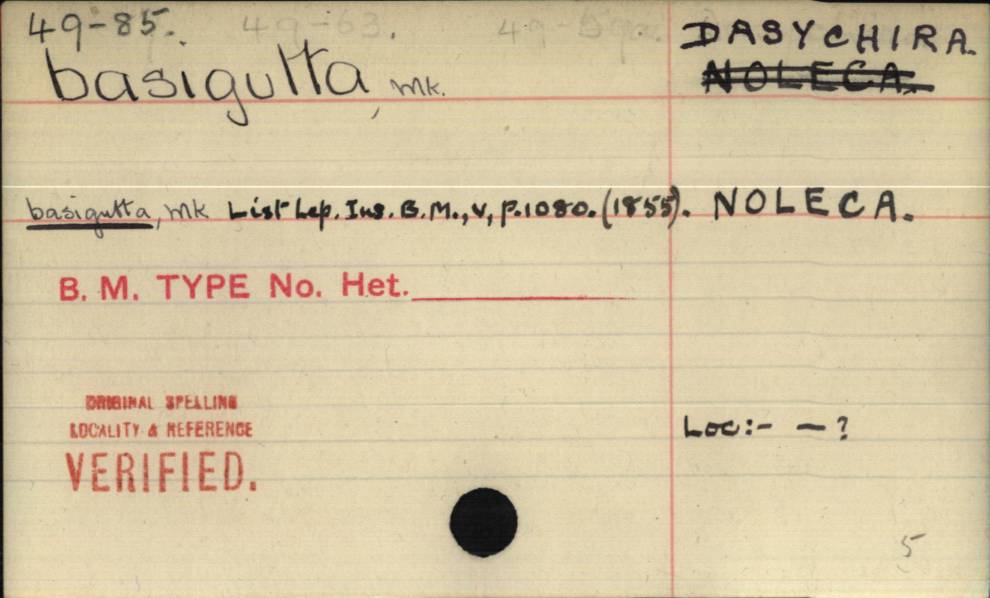 49-85. 49-63. DASYCHIRA.
basigutta, Mk. NOLECA.
basigutta, Mk List Lep. Ins. B.M., V, p.1080. (1855). NOLECA.
B. M. TYPE No. Het.
ORIGINAL SPELLING
LOCALITY & REFERENCE
VERIFIED.
Loc:- — ?
5